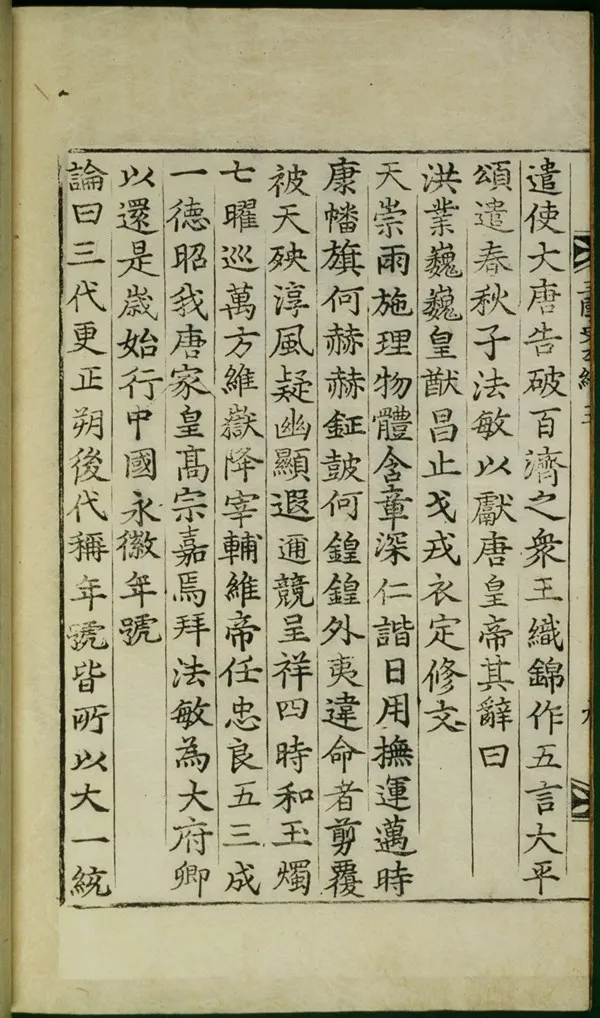 遣使大唐告破百濟之衆王織錦作五言大平
頌遣春秋子法敏以獻唐皇帝其辭曰
洪業巍巍皇猷昌止戈戎衣定修文
天崇雨施理物體含章深仁諧日用撫運邁時
康幡旗何赫赫鉦鼓何鍠鍠外夷違命者剪覆
被天殃淳風疑幽顯遐邇競呈祥四時和玉燭
七曜巡萬方維嶽降宰輔維帝任忠良五三成
一德昭我唐家皇髙宗嘉焉拜法敏為大府卿
以還是歳始行中國永徽年號
論曰三代更正朔後代稱年號皆所以大一統